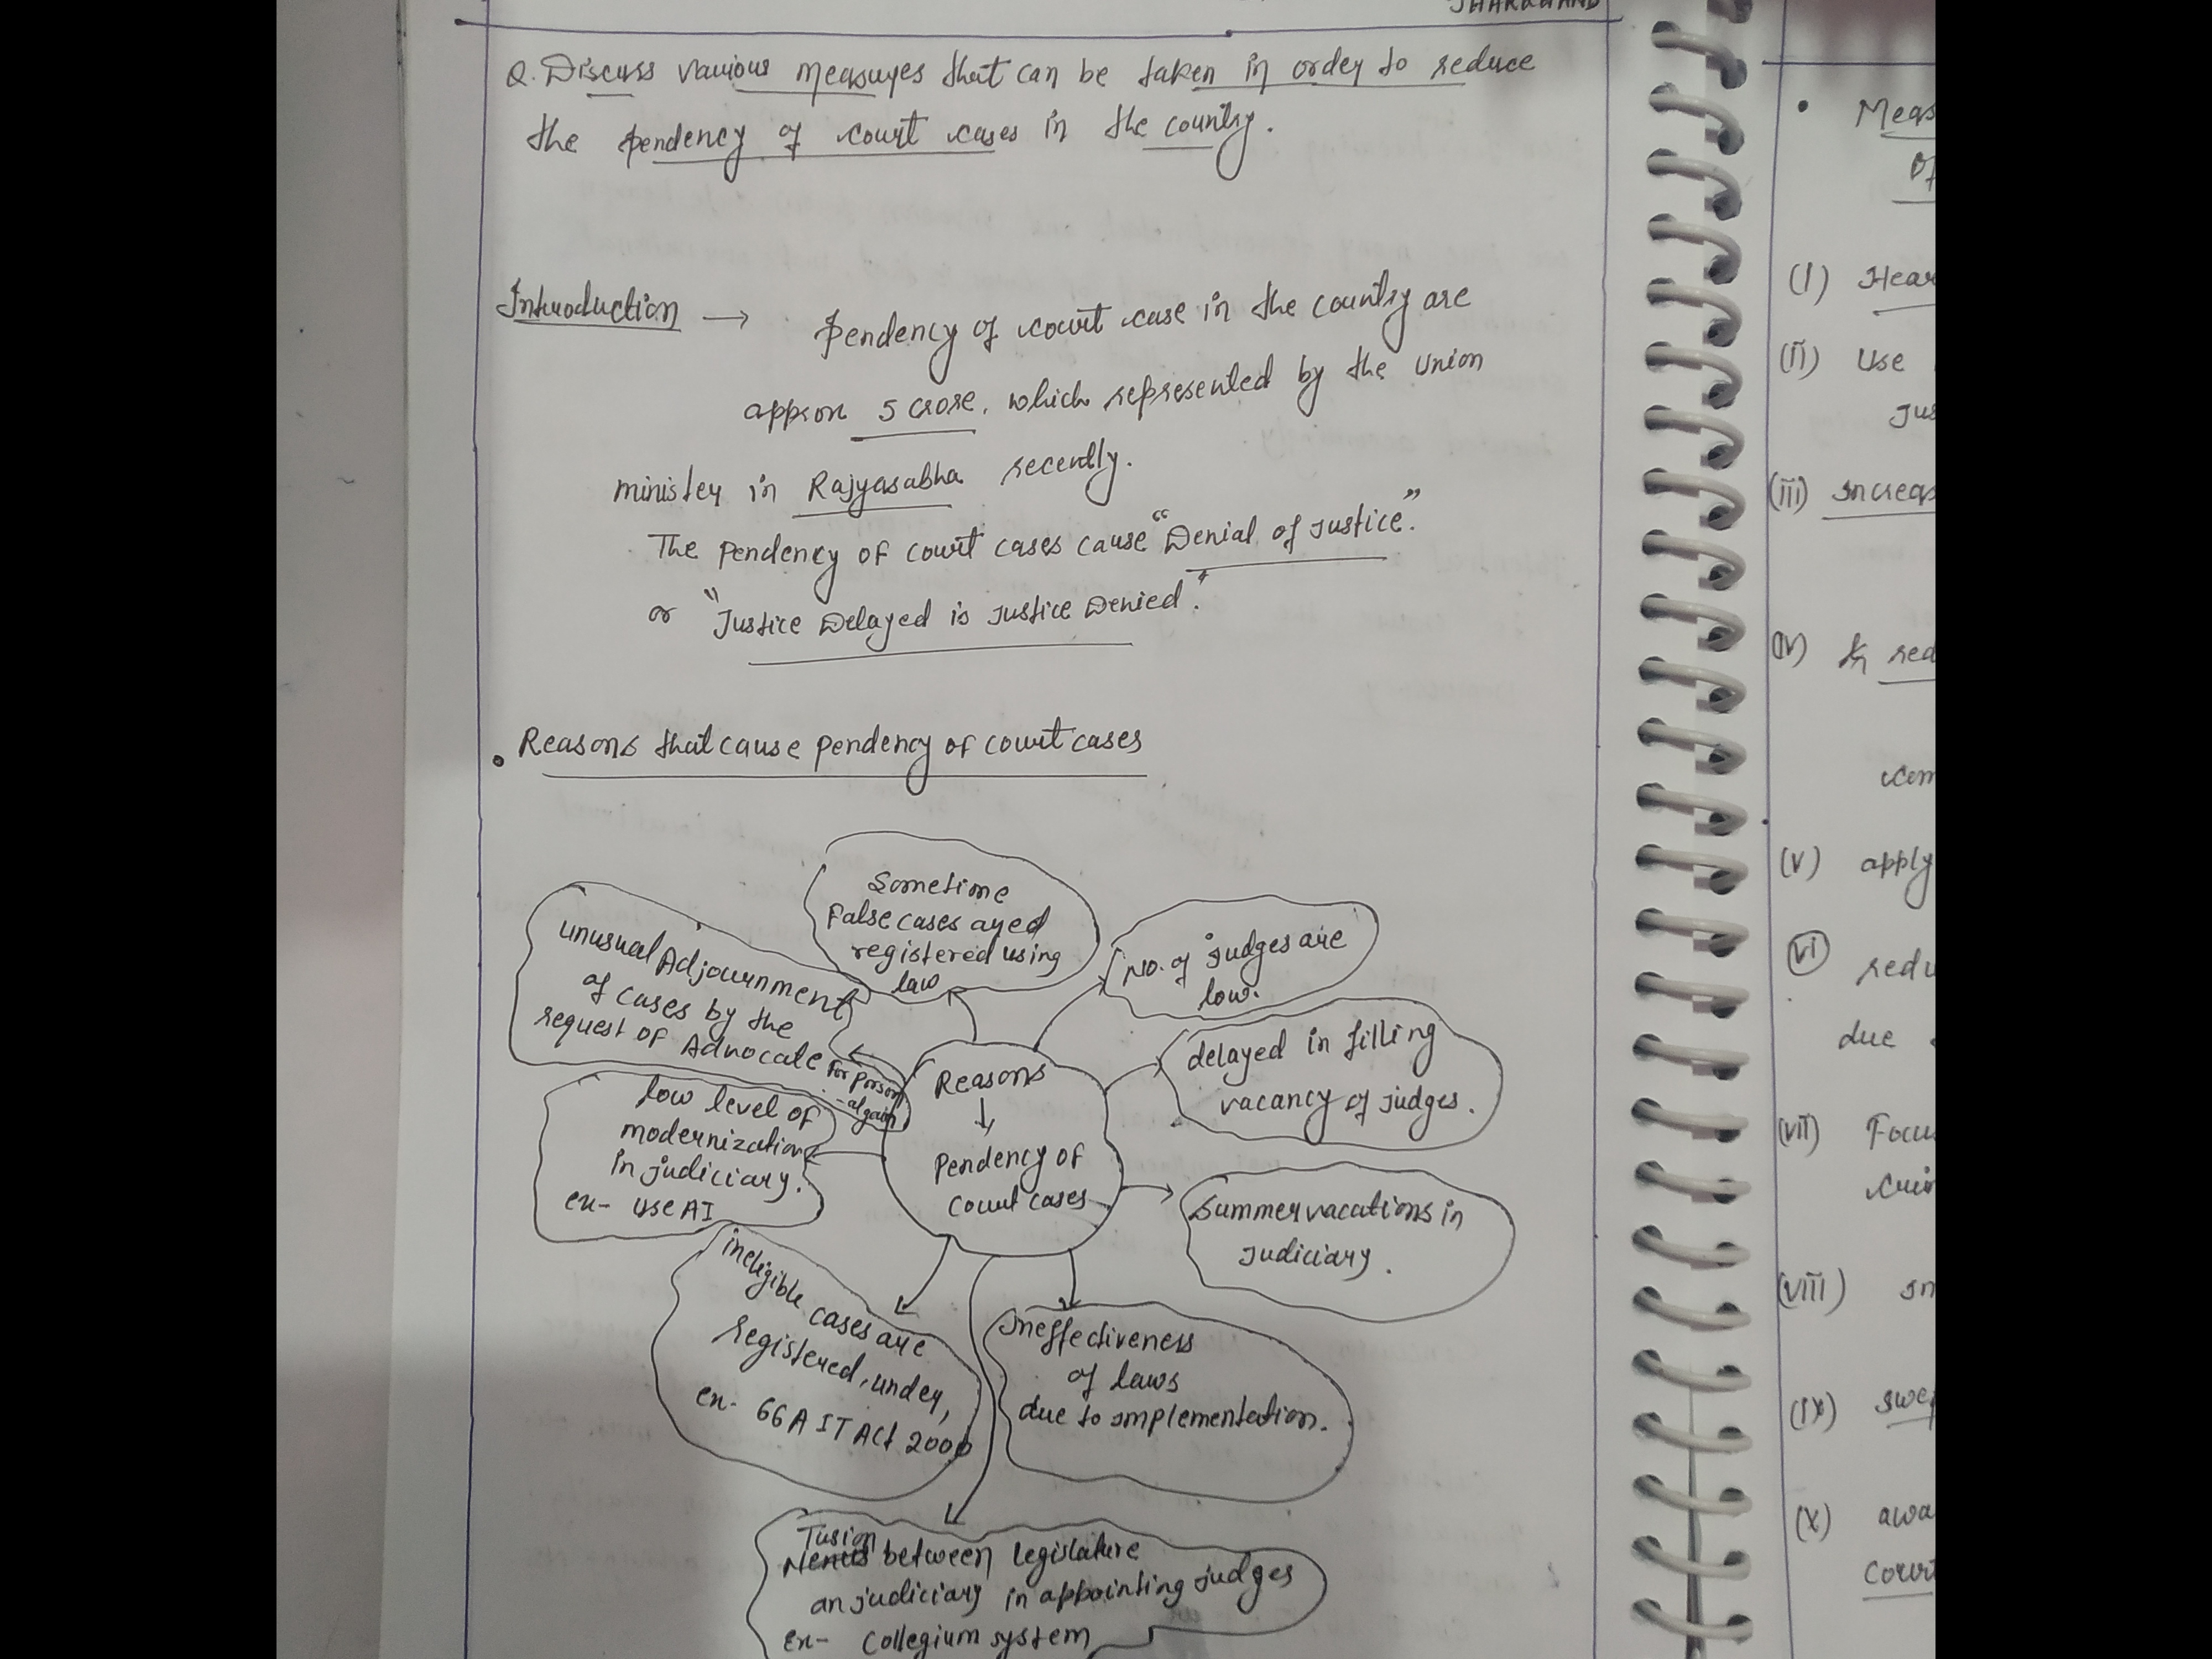 JHARKHAND
Q. Discuss various measures that can be taken in order to reduce
the pendency of court cases in the country.
Introduction → Pendency of court case in the country are
approx 5 crore, which represented by the union
minister in Rajyasabha recently.
The pendency of court cases cause "Denial of Justice".
or "Justice Delayed is Justice Denied".
• Reasons that cause pendency of court cases
Sometime
False cases ayed
registered using
law
No. of judges are
low.
unusual Adjournment
of cases by the
request of Advocate
For person
-al gain
delayed in filling
vacancy of judges.
Reasons
↓
Pendency of
court cases
low level of
modernization
in judiciary.
ex- use AI
Summer vacations in
Judiciary.
ineligible cases are
registered, under,
ex- 66A IT Act 2000
Ineffectiveness
of laws
due to implementation.
Tusion
between legislature
an judiciary in appointing judges
Ex- Collegium system
• Meas
Of
(I) Hear
(II) Use
Jus
(III) Increas
(IV) red
com
(V) apply
(VI) redu
due
(VII) Focu
(VIII)
(IX) swe
(X) awa
court